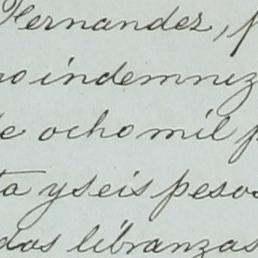 Hernandez, p
no indemniz
de ocho mil p
ta y seis pesos
dos libranzas